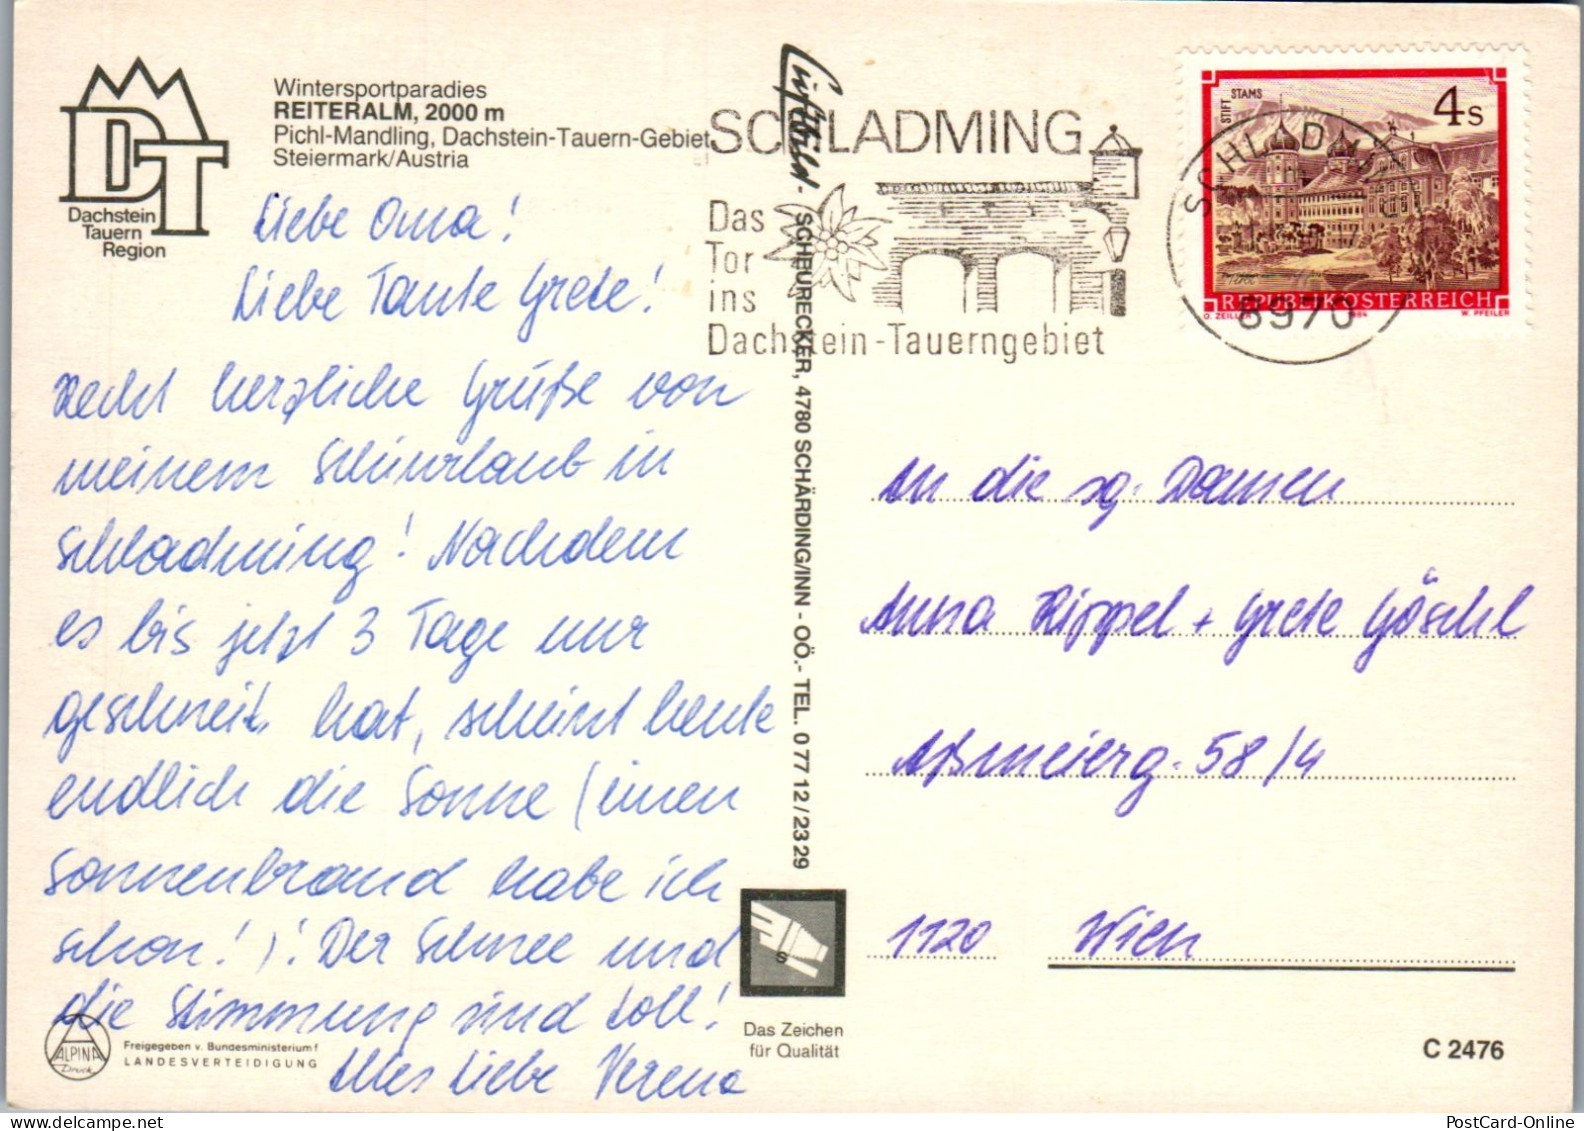 Wintersportparadies
REITERALM, 2000 m
Pichl-Mandling, Dachstein-Tauern-Gebiet
Steiermark/Austria
DT
Dachstein
Tauern
Region
Liebe Oma!
Liebe Tante Grete!
Recht herzliche Grüße von
meinem Schiurlaub in
Schladming! Nachdem
es bis jetzt 3 Tage nur
geschneit hat, scheint heute
endlich die Sonne (einen
Sonnenbrand habe ich
schon!)! Der Schnee und
die Stimmung sind toll!
Alles Liebe Verena
ALPINA
Druck
Freigegeben v. Bundesministerium f
LANDESVERTEIDIGUNG
Luftbild - SCHEURECKER, 4780 SCHÄRDING/INN - OÖ.- TEL. 0 77 12 / 23 29
S
Das Zeichen
für Qualität
SCHLADMING
Das
Tor
ins
Dachstein-Tauerngebiet
SCHLADMING
8970
STIFT STAMS
4 S
REPUBLIK ÖSTERREICH
O. ZEILLER 1984 W. PFEILER
An die sg. Damen
Anna Rippel + Grete Göschl
Aßmeierg. 58/4
1120 Wien
C 2476
PostCard-Online.com